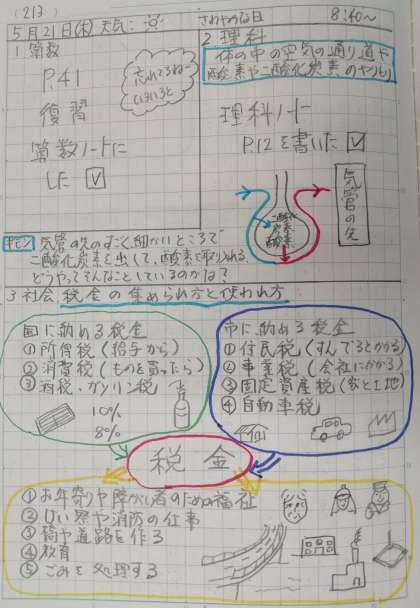 (213)
5月21日(木) 天気:
さわやかな日
8:40~
1 算数
P.41
復習
算数ノートに
した
忘れてるねー
いろいろと
2 理科
体の中の空気の通り道や
酸素や二酸化炭素のやりとり
理科ノート
P.12を書いた
気管の先
二酸化
炭素
酸素
ギモン 気管の先のすごく細かいところで
二酸化炭素を出して、酸素を取り入れる。
どうやってそんなことしているのかな?
3 社会 税金の集められ方と使われ方
国に納める税金
① 所得税(給与から)
② 消費税(ものを買ったら)
③ 酒税、ガソリン税
10%
8%
市に納める税金
① 住民税(すんでるとかかる)
② 事業税(会社にかかる)
③ 固定資産税(家と土地)
④ 自動車税
税金
① お年寄りや障がい者のための福祉
② けい察や消防の仕事
③ 橋や道路を作る
④ 教育
⑤ ごみを処理する